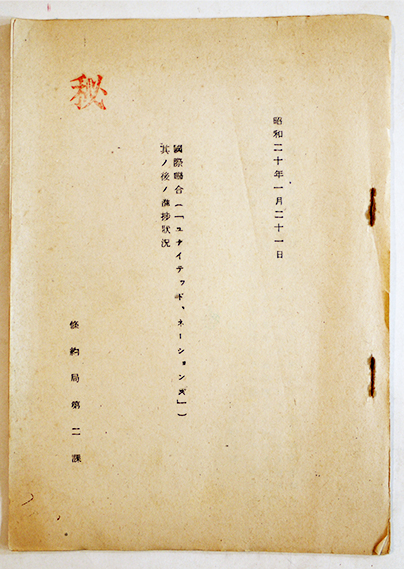 昭和二十年一月二十一日
國際聯合(「ユナイテッド、ネーションズ」)
其ノ後ノ進捗狀況
條約局第二課
秘